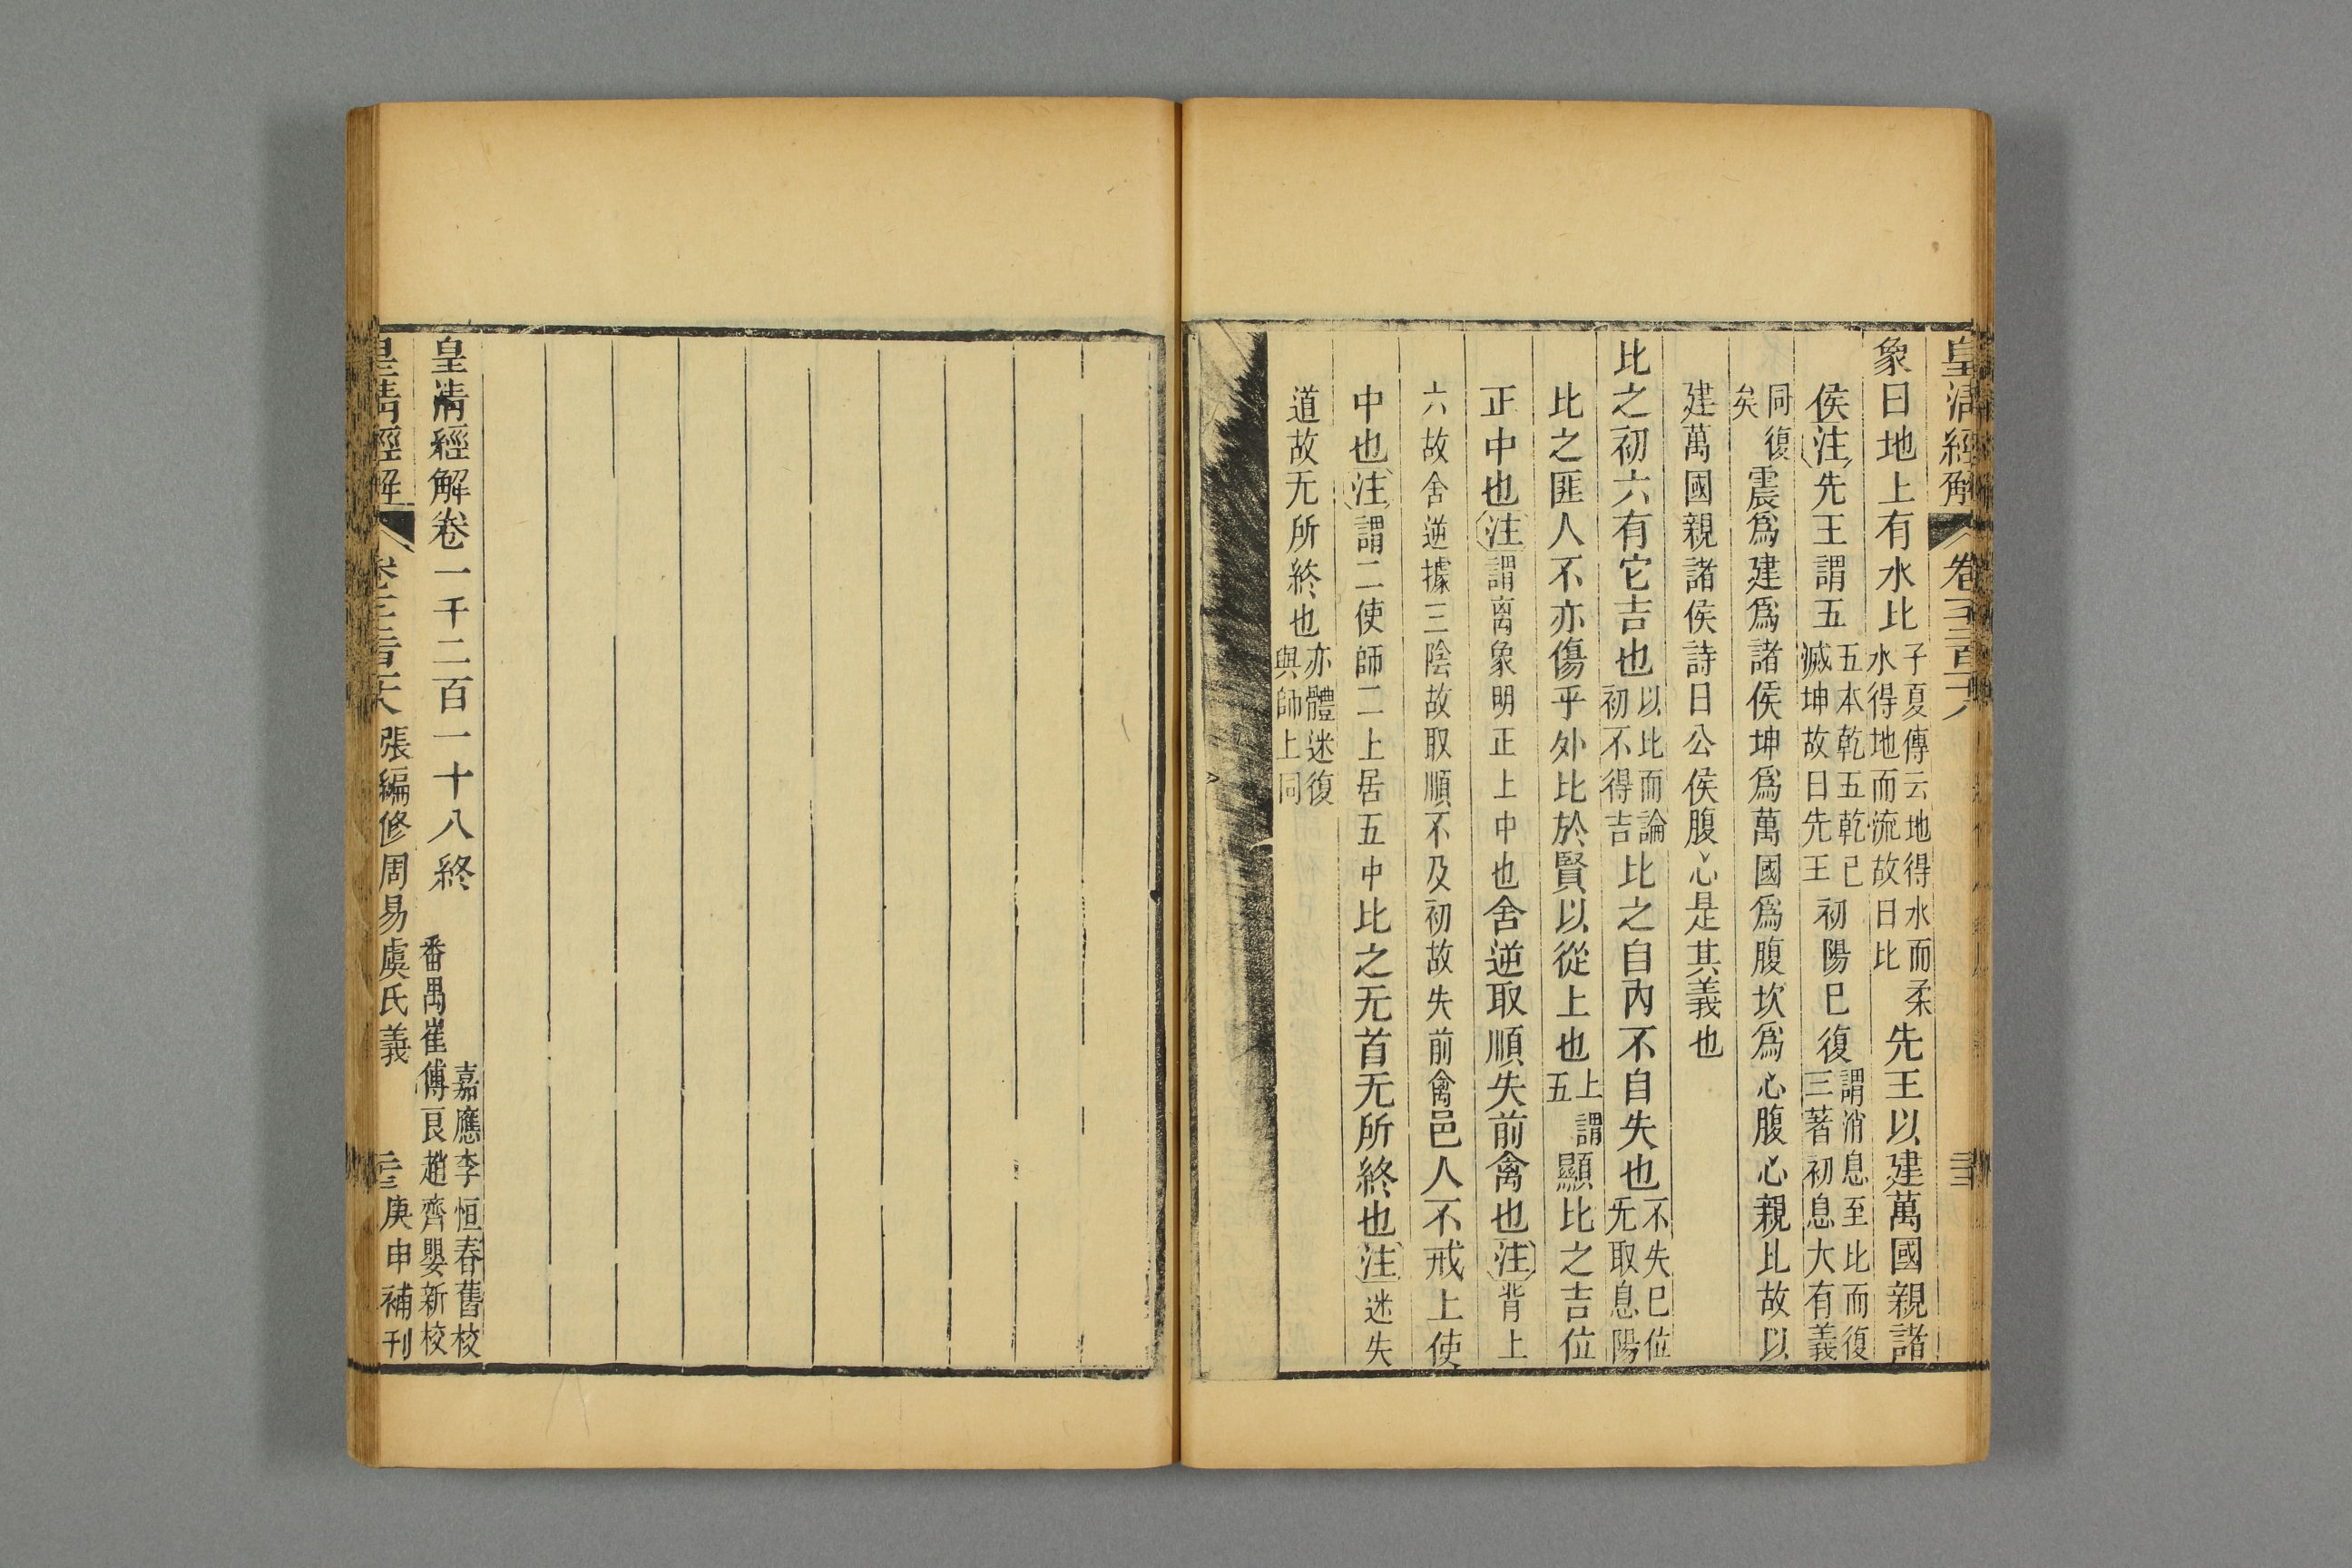 皇清經解 卷一千二百一十八
象曰地上有水比子夏傳云地得水而柔水得地而流故曰比先王以建萬國親諸
侯注先王謂五五本乾五乾已滅坤故曰先王初陽已復謂消息至比而復三著初息大有義
同復矣震爲建爲諸侯坤爲萬國爲腹坎爲心腹心親比故以
建萬國親諸侯詩曰公侯腹心是其義也
比之初六有它吉也以比而論初不得吉比之自內不自失也不失已位无取息陽
比之匪人不亦傷乎外比於賢以從上也上謂五顯比之吉位
正中也注謂离象明正上中也舍逆取順失前禽也注背上
六故舍逆據三陰故取順不及初故失前禽邑人不戒上使
中也注謂二使師二上居五中比之无首无所終也注迷失
道故无所終也亦體迷復與師上同
皇清經解卷一千二百一十八終
嘉應李恒春舊校
番禺崔傅良趙齊嬰新校
皇清經解 張編修周易虞氏義 庚申補刊